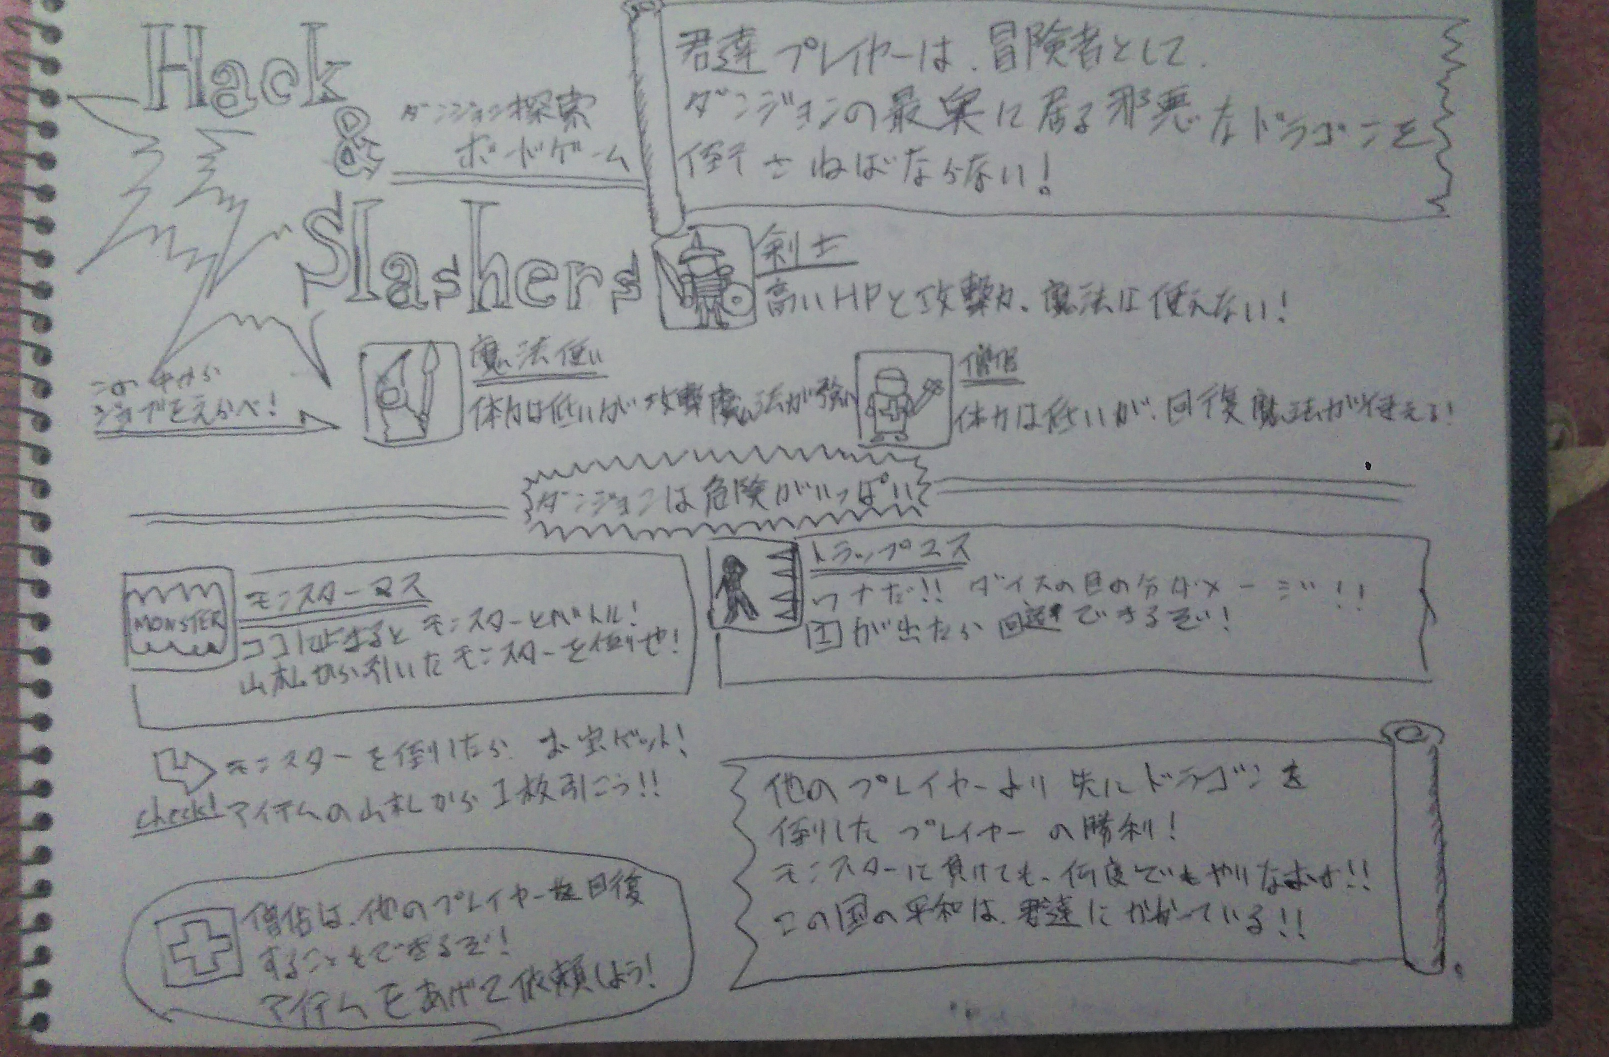 Hack
&
Slashers
ダンジョン探索
ボードゲーム
君達プレイヤーは、冒険者として、
ダンジョンの最奥に居る邪悪なドラゴンを
倒さねばならない!
剣士
高いHPと攻撃力、魔法は使えない!
この中から
ジョブをえらべ!
魔法使い
体力は低いが攻撃魔法が強い
僧侶
体力は低いが、回復魔法が使える!
ダンジョンは危険がいっぱい
MONSTER
モンスターマス
ココに止まるとモンスターとバトル!
山札から引いたモンスターを倒せ!
トラップマス
ワナだ!! ダイスの目の分ダメージ!!
が出たら回避できるぞ!
モンスターを倒したら お宝ゲット!
check! アイテムの山札から1枚引こう!!
僧侶は、他のプレイヤーを回復
することもできるぞ!
アイテムをあげて依頼しよう!
他のプレイヤーより先にドラゴンを
倒した プレイヤーの勝利!
モンスターに負けても、何度でもやりなおせ!!
この国の平和は、君達にかかっている!!